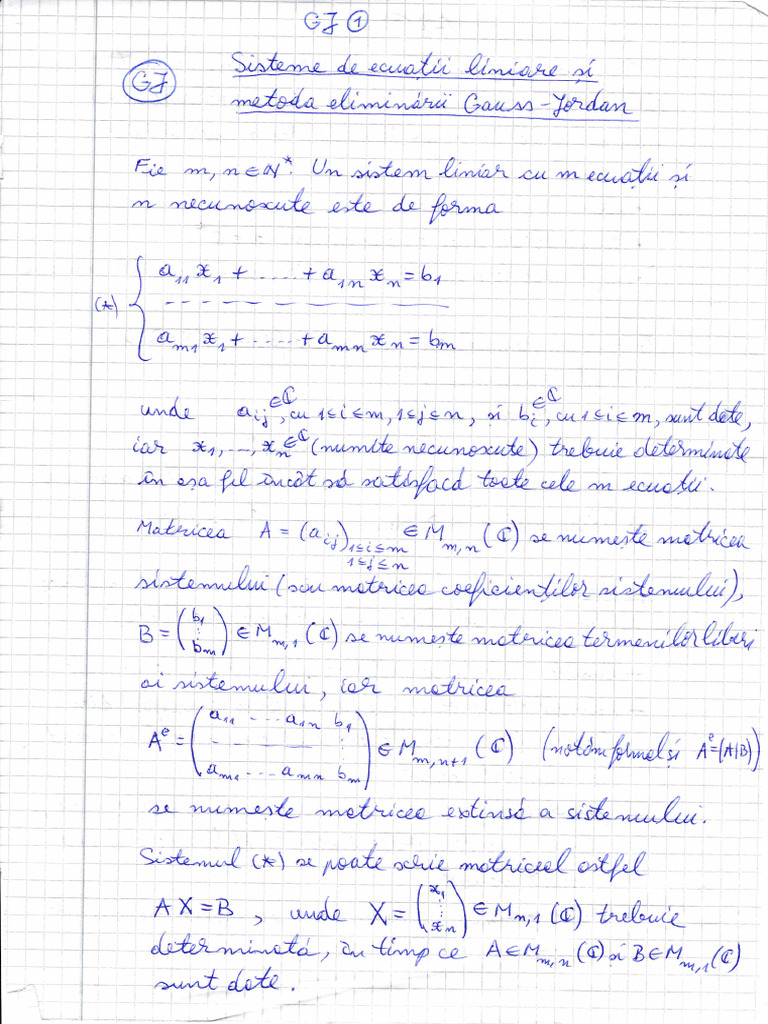 GJ ①
GJ Sisteme de ecuații liniare și
metoda eliminării Gauss-Jordan
Fie m, n ∈ ℕ*. Un sistem liniar cu m ecuații și
n necunoscute este de forma
a₁₁x₁ + ..... + a₁ₙxₙ = b₁
(*) { - - - - - - - - - -
aₘ₁x₁ + ..... + aₘₙxₙ = bₘ
unde aᵢⱼ ∈ ℂ, cu 1≤i≤m, 1≤j≤n, și bᵢ ∈ ℂ, cu 1≤i≤m, sunt date,
iar x₁, ..., xₙ ∈ ℂ (numite necunoscute) trebuie determinate
în așa fel încât să satisfacă toate cele m ecuații.
Matricea A = (aᵢⱼ) 1≤i≤m 1≤j≤n ∈ Mₘ,ₙ(ℂ) se numește matricea
sistemului (sau matricea coeficienților sistemului),
B = (b₁ ⋮ bₘ) ∈ Mₘ,₁(ℂ) se numește matricea termenilor liberi
ai sistemului, iar matricea
Aᵉ = (a₁₁ ... a₁ₙ b₁ - - - - ⋮ aₘ₁ ... aₘₙ bₘ) ∈ Mₘ,ₙ₊₁(ℂ) (notăm formal și Aᵉ=(A|B))
se numește matricea extinsă a sistemului.
Sistemul (*) se poate scrie matriceal astfel
AX = B, unde X = (x₁ ⋮ xₙ) ∈ Mₙ,₁(ℂ) trebuie
determinată, în timp ce A∈Mₘ,ₙ(ℂ) și B∈Mₘ,₁(ℂ)
sunt date.